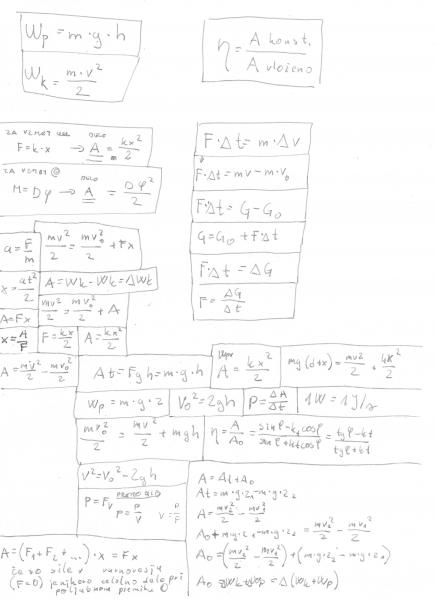 Wp = m·g·h
Wk = m·v²/2
η = A konst. / A vloženo
ZA VZMOT
F = k·x → A = kx²/2
ZA VZMOT @
M = Dφ → A = Dφ²/2
F·Δt = m·Δv
F·Δt = mv - m·v₀
F·Δt = G - G₀
G = G₀ + F·Δt
F·Δt = ΔG
F = ΔG/Δt
a = F/m
mv²/2 = mv₀²/2 + Fx
x = at²/2
A = Wk - Wk = ΔWk
mv²/2 = mv₀²/2 + A
A = Fx
x = A/F
F = kx/2
A = kx²/2
A = mv²/2 - mv₀²/2
At = Fgh = m·g·h
A = kx²/2
mg(d+x) = mv²/2 + kx²/2
Wp = m·g·z
V₀² = 2gh
P = ΔA/Δt
1W = 1J/s
mv₀²/2 = mv²/2 + mgh
η = A/A₀ = sinφ - kt cosφ / sinφ + kt cosφ = tgφ - kt / tgφ + kt
V² = V₀² - 2gh
P = Fv
P = F/V
V = P/F
A = At + A₀
At = m·g·z₁ - m·g·z₂
A = mv₂²/2 - mv₁²/2
A₀ + m·g·z₁ - m·g·z₂ = mv₂²/2 - mv₁²/2
A₀ = (mv₂²/2 - mv₁²/2) + (m·g·z₂ - m·g·z₁)
A₀ = ΔWk + ΔWp = Δ(Wk + Wp)
A = (F₁ + F₂ + ...)·x = Fx
če so sile v ravnovesju
(F=0) je njihovo celotno delo pri
poljubnem premiku 0